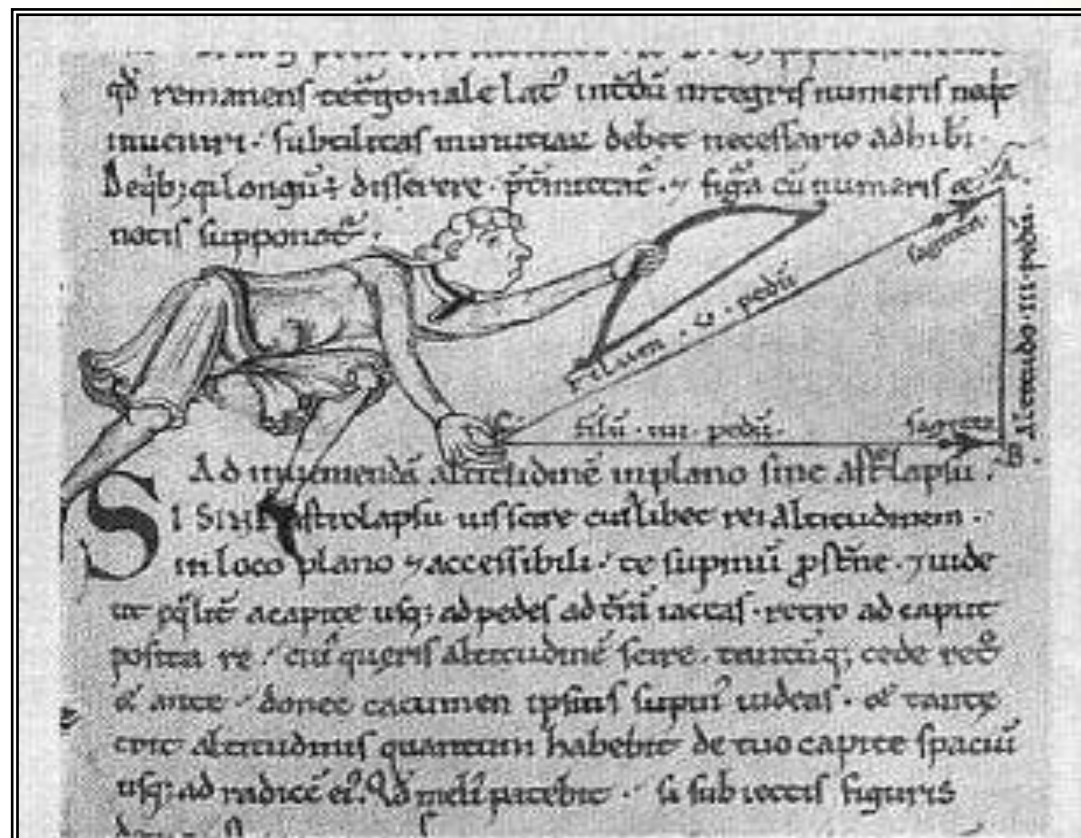 qd remanens tetragonale lat' intdū integris numeris nō pot
inueniri · subtilitas minutiaru debet necessario adhiberi ·
De qb; qi longū ÷ disserere · ⁊ figura cū numeris &
notis supponat ·
A
sagitta
filum · u · pedū
Altitudo · iii · pedū ·
filū · iiii · pedū ·
sagitta
· B ·
Ad inueniendā altitudinē in plano sine astrolapsu ·
SI SINE astrolapsu uis scire cuislibet rei altitudinem ·
in loco plano ⁊ accessibili · te supinū pstne · ⁊ uide
ut a capite usq; ad pedes ad trā iaceas · retro ad caput
posita re · cui' queris altitudinē scire · tantūq; cede retro
& ante · donec cacumen ipsius supin' uideas · & tante
erit altitudinis quantum habebit de tuo capite spaciū
usq; ad radicē ei' · Qd meli' patebit · si subiectis figuris